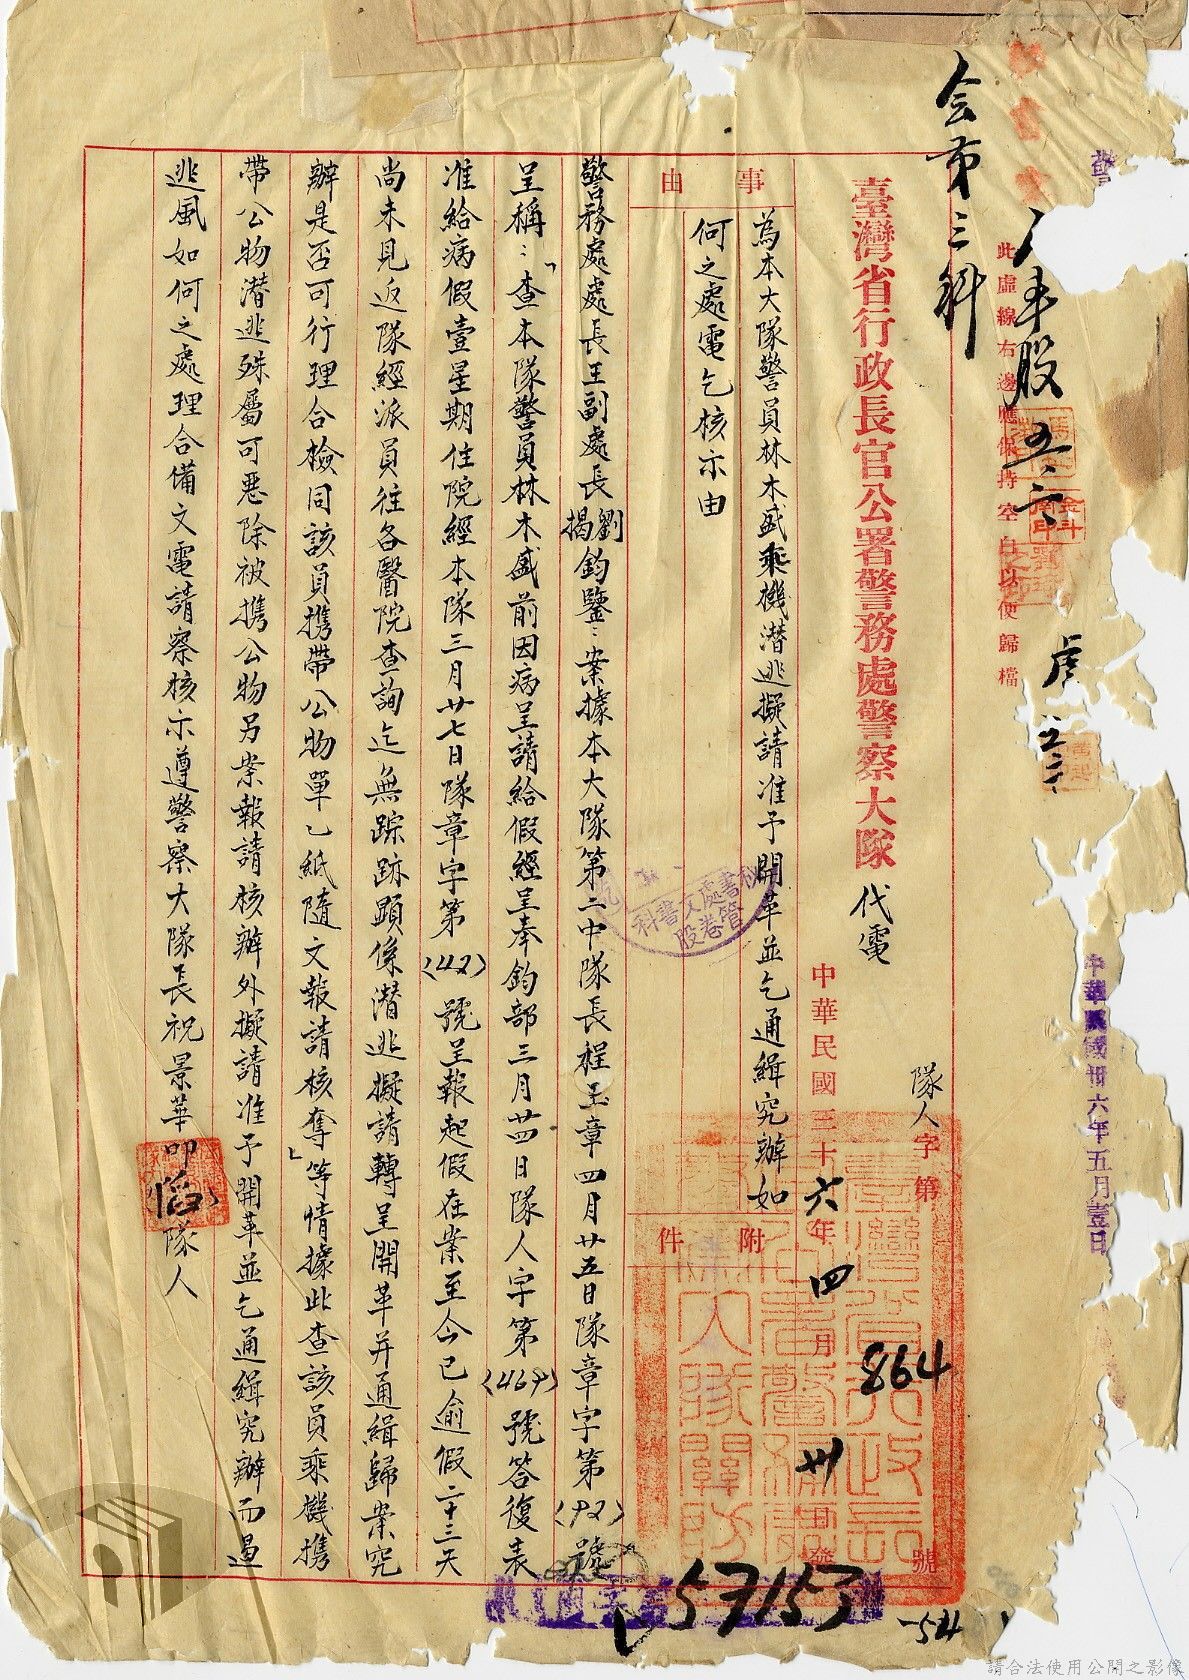 会第三科
此虛線右邊應保持空白以便歸檔
中華民國卅六年五月壹日
臺灣省行政長官公署警務處警察大隊代電
隊人字第864號
中華民國三十六年四月卅日發
事由
為本大隊警員林木盛乘機潛逃擬請准予開革並乞通緝究辦如
何之處電乞核示由
附件
警務處處長王副處長劉揭鈞鑒：案據本大隊第二中隊長程玉章四月廿五日隊章字第(92)號
呈稱：「查本隊警員林木盛前因病呈請給假經呈奉鈞部三月廿四日隊人字第(469)號答復表
准給病假壹星期住院經本隊三月廿七日隊章字第(42)號呈報起假在案至今已逾假二十三天
尚未見返隊經派員往各醫院查詢迄無踪跡顯係潛逃擬請轉呈開革并通緝歸案究
辦是否可行理合檢同該員携帶公物單乙紙隨文報請核奪」等情據此查該員乘機携
帶公物潛逃殊屬可惡除被携公物另案報請核辦外擬請准予開革並乞通緝究辦而遏
逃風如何之處理合備文電請察核示遵警察大隊長祝景華叩隊人
秘書處文書科管卷股
臺灣省行政長官公署警務處警察大隊關防
57153
請合法使用公開之影像